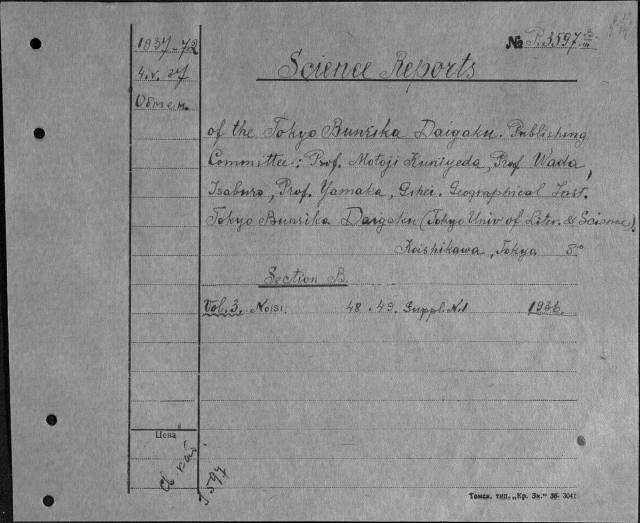 1937-72
4.V.37
Обмен.
№ P.3597 B/III
Science Reports
of the Tokyo Bunrika Daigaku. Publishing
Committee: Prof. Motoji Kuniyeda, Prof Wada,
Isaburo, Prof. Yamaka, Gihei. Geographical Inst.
Tokyo Bunrika Daigaku (Tokyo Univ of Liter. & Science)
Koishikawa, Tokya 8°
Section B.
Vol. 3, No 48. 49. Suppl. N.1 1936.
Цена
Св. кат.
3597
Томск. тип. „Кр. Зн." 36 3041